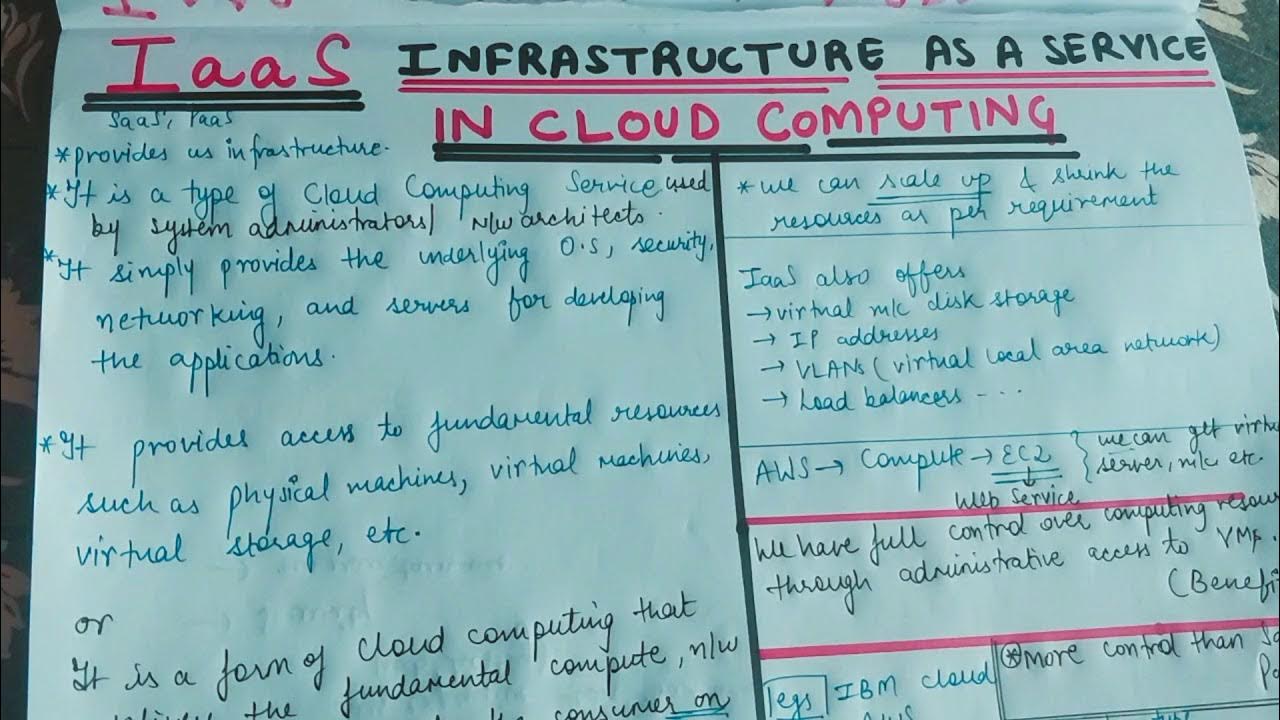 IaaS INFRASTRUCTURE AS A SERVICE
IN CLOUD COMPUTING
SaaS, PaaS
*provides us infrastructure.
*It is a type of Cloud Computing Service used
by system administrators/ N/w architects.
*It simply provides the underlying O.S, security,
networking, and servers for developing
the applications.
*It provides access to fundamental resources
such as physical machines, virtual machines,
virtual storage, etc.
or
It is a form of cloud computing that
the fundamental compute, n/w
consumer on
*we can scale up & shrink the
resources as per requirement
IaaS also offers
→virtual m/c disk storage
→ IP addresses
→ VLANs (virtual local area network)
→ Load balancers - - -
AWS→ Compute→ EC2 } we can get
server, m/c etc.
Web Service
We have full control over computing
through administrative access to VMs.
*More control than
egs IBM cloud
AWS